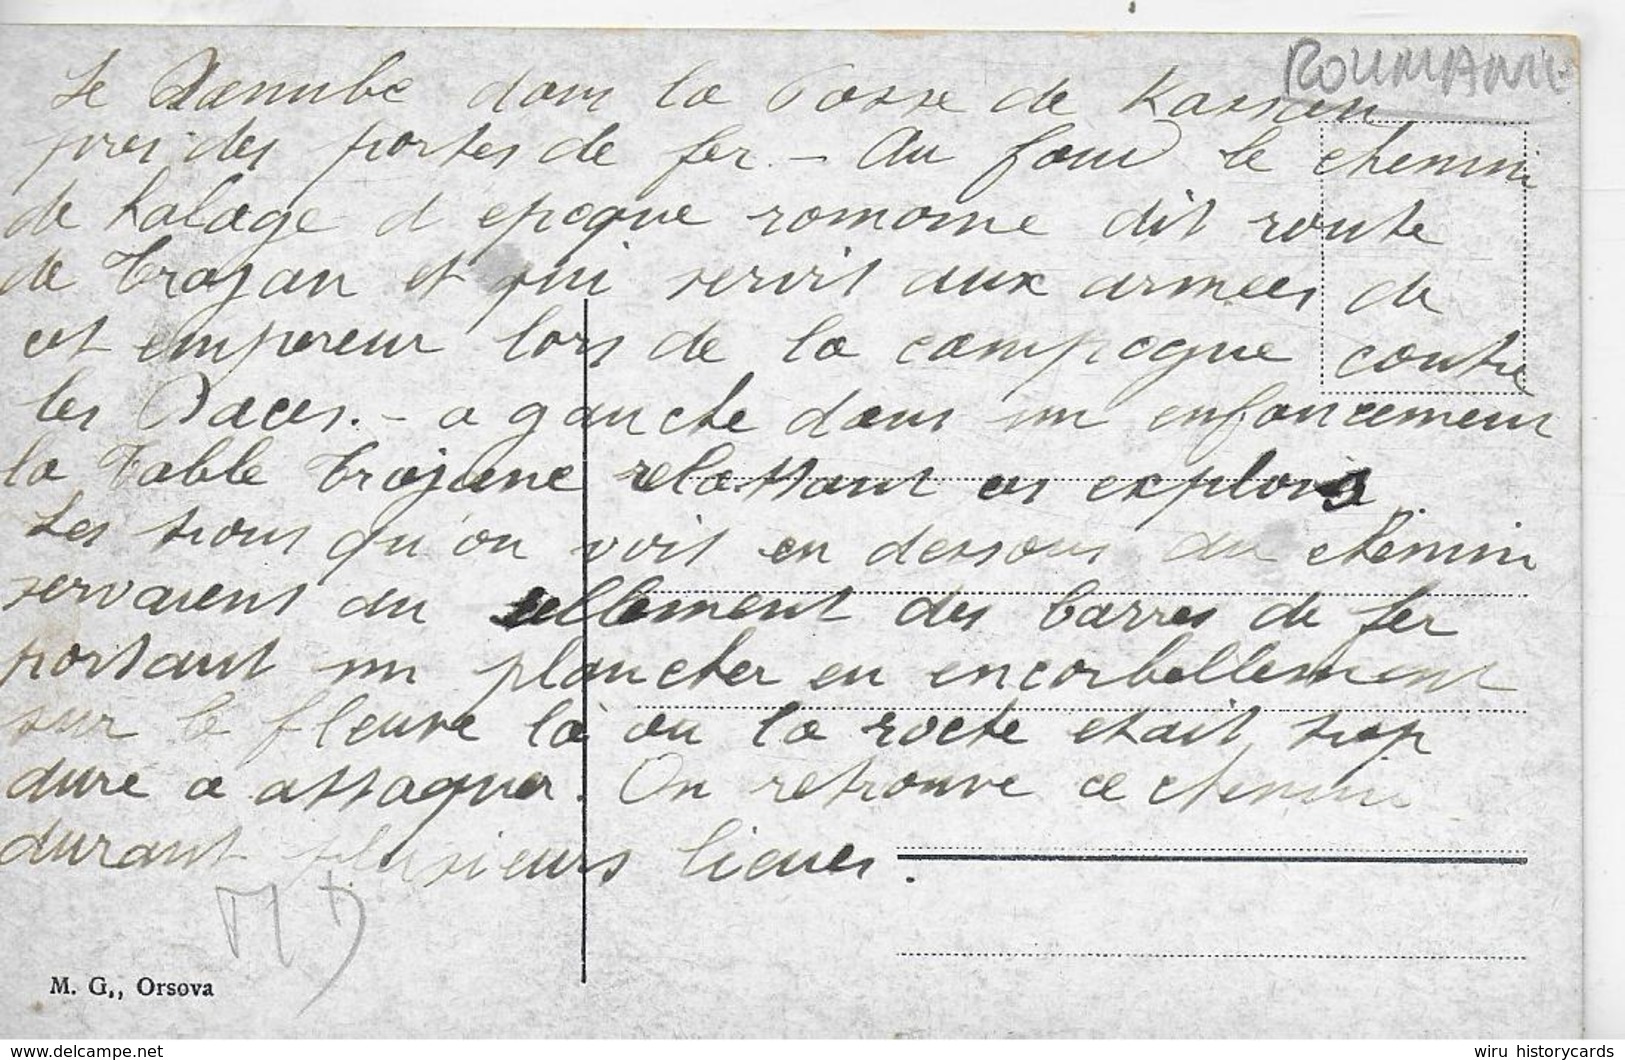 ROUMANIE
Le Danube dans la Passe de Kassan
pres des portes de fer - Au fond le chemin
de halage d'epoque romaine dit route
de Trajan et qui servit aux armees de
cet empereur lors de la campagne contre
les Daces. - a gauche dans un enfoncement
la Table Trajane relattant ces exploits
Les trous qu'on voit en dessous du chemin
servaient au scellement des barres de fer
portant un plancher en encorbellement
sur le fleuve là ou la roche etait trop
dure a attaquer. On retrouve ce chemin
durant plusieurs lieues.
M. G., Orsova
delcampe.net
wiru_historycards